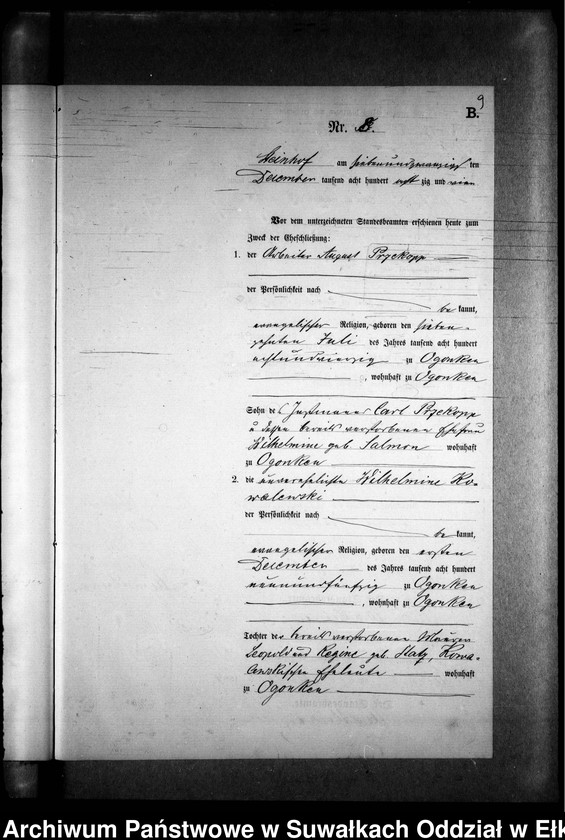 9
B.
Nr. 8.
Steinhof am siebenundzwanzigsten
December tausend acht hundert achtzig und vier
Vor dem unterzeichneten Standesbeamten erschienen heute zum
Zweck der Eheschließung:
1. der Arbeiter August Przekopp
der Persönlichkeit nach
bekannt,
evangelischer Religion, geboren den sieben-
zehnten Juli des Jahres tausend acht hundert
achtundvierzig zu Ogonken
, wohnhaft zu Ogonken
Sohn des Instmanns Carl Przekopp
u dessen bereits verstorbenen Ehefrau
Wilhelmine geb Salmon wohnhaft
zu Ogonken
2. die unverehelichte Wilhelmine Ko-
walewski
der Persönlichkeit nach
bekannt,
evangelischer Religion, geboren den ersten
December des Jahres tausend acht hundert
neunundfünfzig zu Ogonken
, wohnhaft zu Ogonken
Tochter der bereits verstorbenen Maurer
Leopold und Regine geb Kowa-
lewskischen Eheleute wohnhaft
zu Ogonken
Archiwum Państwowe w Suwałkach Oddział w Ełk